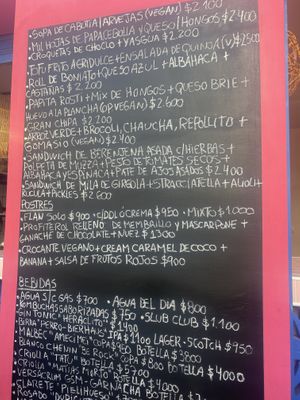 • SOPA DE CABUTIA/ARVEJAS (VEGAN) $2.100
• MILHOJAS DE PAPA CEBOLLA Y QUESO/HONGOS $2.400
• CROQUETAS DE CHOCLO + YASGUA $2.200
• TOFU FRITO AGRIDULCE + ENSALADA DE QUINOA (V) $2500
• ROLL DE BONIATO + QUESO AZUL + ALBAHACA +
CASTAÑAS $2.200
• PAPITA ROSTI + MIX DE HONGOS + QUESO BRIE +
HUEVO A LA PLANCHA (OP VEGAN) $2.600
• GRAN CHIPA $2.200
• ARROZ VERDE + BROCOLI, CHAUCHA, REPOLLITO +
GOMASIO (VEGAN) $2.400
• SANDWICH DE BERENJENA ASADA C/HIERBAS +
DE MUZZA + PESTO DE TOMATES SECOS +
ALBAHACA Y ESPINACA + PATE DE AJOS ASADOS $2.400
• SANDWICH DE MILA DE GIRGOLA + STRACCIATELLA + ALIOLI +
RUCULA + PICKLES $2.800
POSTRES
• FLAN SOLO $900 • C/DDL Ó CREMA $950 • MIXTO $1.000
• PROFITEROL RELLENO DE MEMBRILLO Y MASCARPONE +
GANACHE DE CHOCOLATE + NUEZ $1.300
• CROCANTE VEGANO + CREAM CARAMEL DE COCO +
BANANA + SALSA DE FRUTOS ROJOS $900
BEBIDAS
• AGUA S/C GAS $700 • AGUA DEL DIA $800
• KOMBUCHA SABORIZADAS $750 • SLUB CLUB $1.100
GIN TONIC "HERACLITO" $1400
BIRRA "PERRO-BIERHAUS" IPA $1100 LAGER-SCOTCH $950
MALBEC "AMECIMEI" COPA $900 BOTELLA $3800
BLANCO CHENIN BE ROCK COPA $800 BOTELLA $4000
CRIOLLA "TATÚ" BOTELLA $5700
CRIOLLA "MATIAS MORTO" BOTELLA $4000
VERSÁCRUM GSM - GARNACHA BOTELLA
CLARETE "PIELIHUESO"
ROSADO